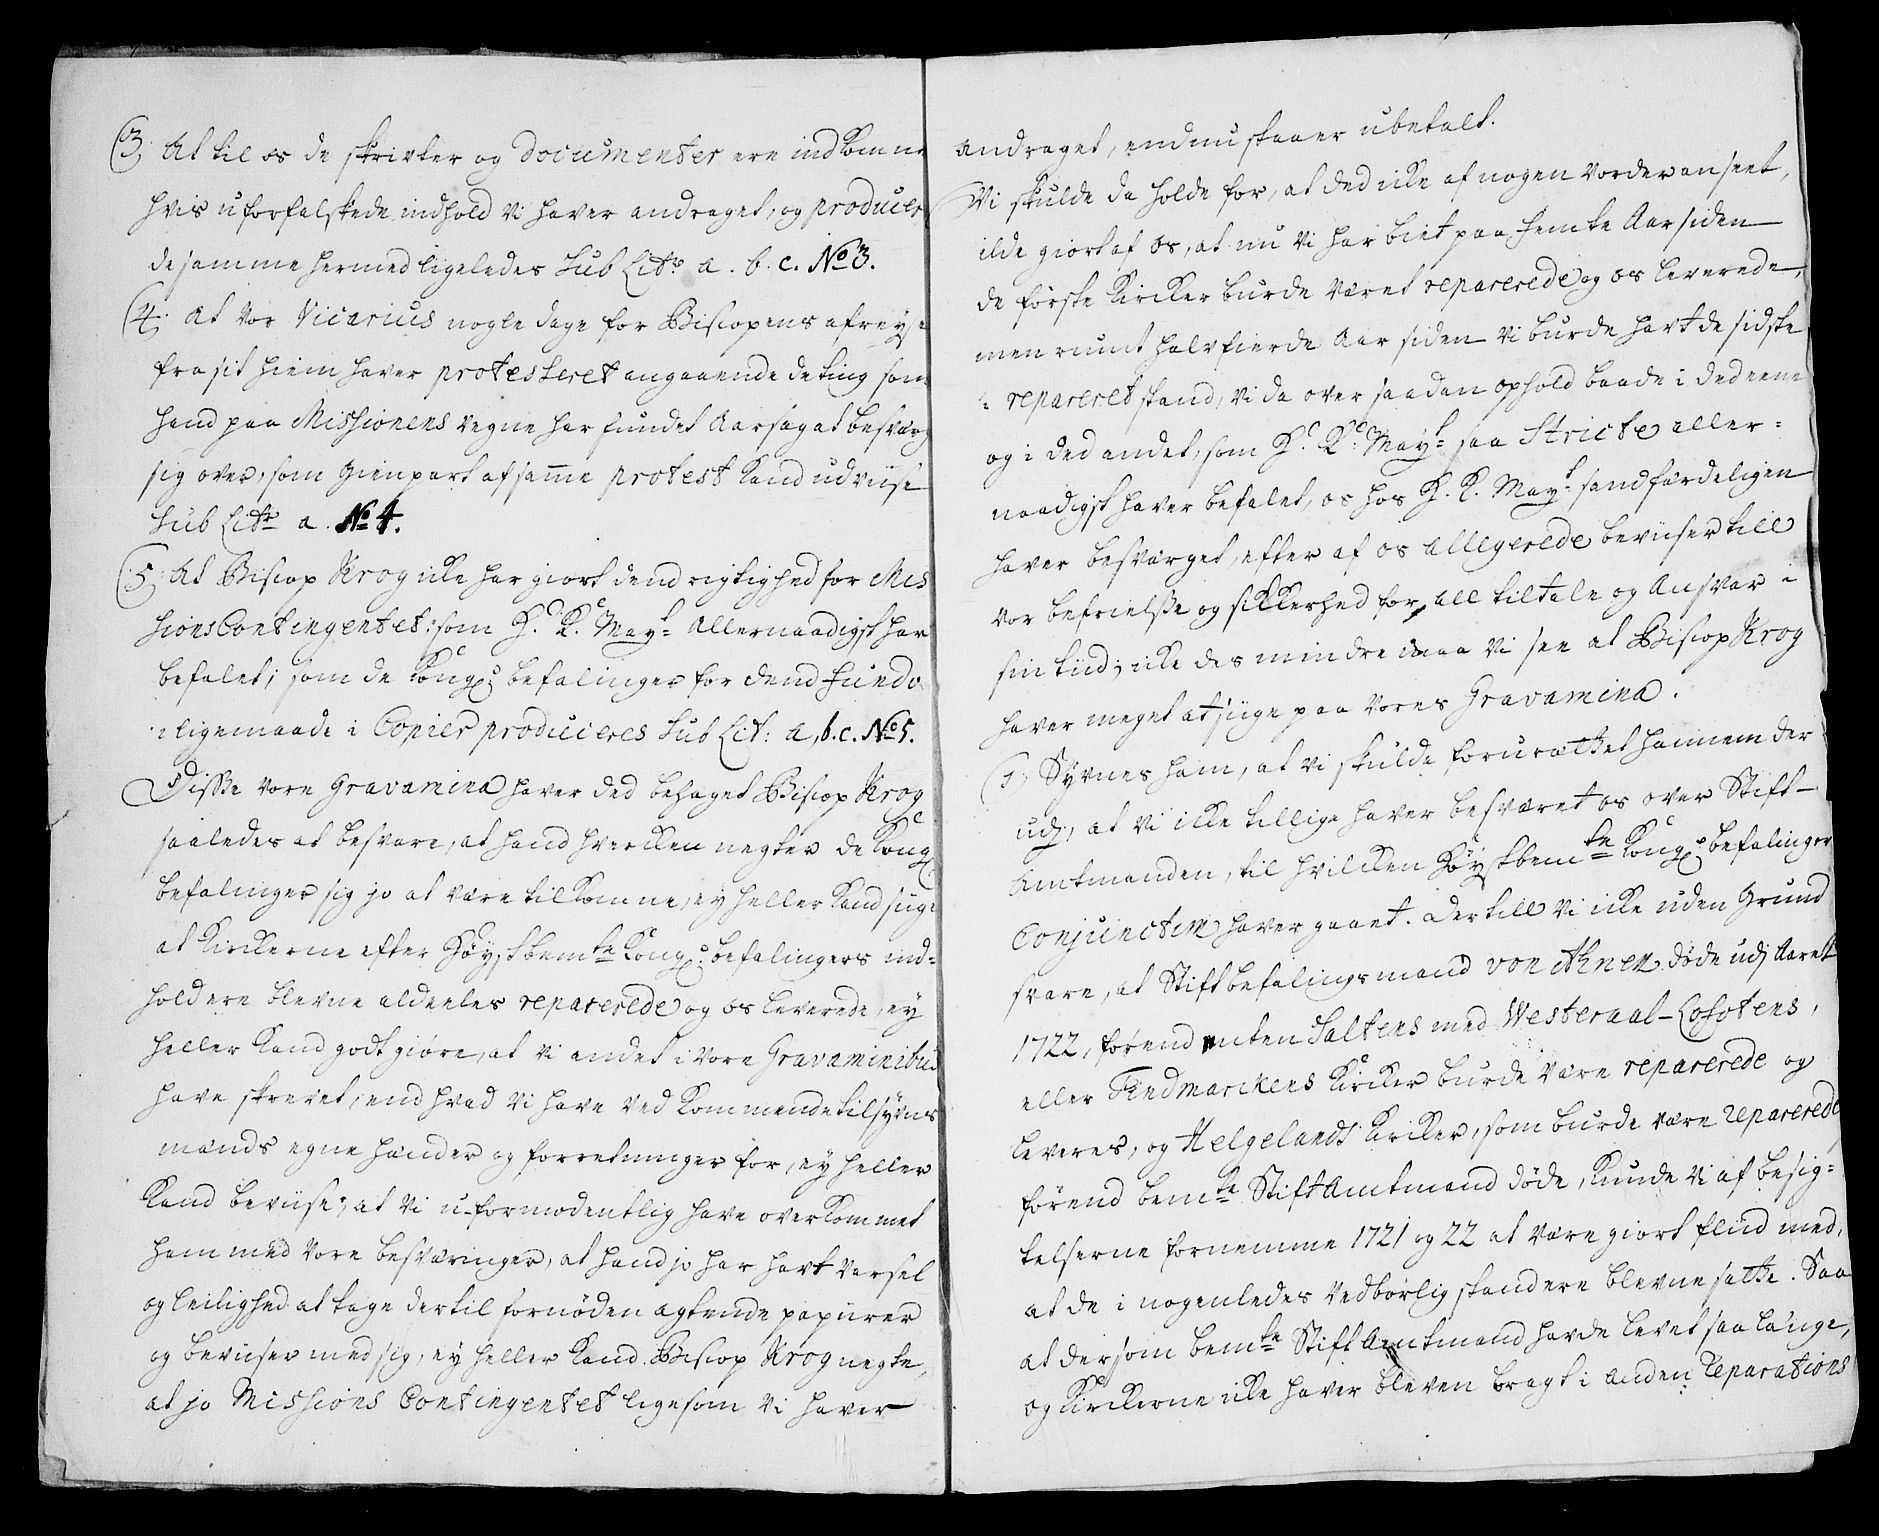 (3. At til os de skrivter og documenter ere indkomne
hvis uforfalskede indhold vi haver andraget, og producer
de samme hermed ligeledes sub Litr. a. b. c. No 3.
(4. At vor Vicarius nogle dage for Biscopens afreyse
fra sit hiem haver protesteret angaaende de ting som
hand paa Missionens vegne har fundet Aarsag at besvær
sig over, som gienpart af samme protest kand udviise
sub Litr. a. No 4.
(5. At Biscop Krog icke har giort dend rigtighed for Mis
sions Contingentet: som H. K. Mayt. Allernaadigst har
befalet; som de Kongl. befalinger for dend fundo
i ligemaade i Copier produceres sub Lit: a, b. c. No 5.
Disse vore Gravamina haver ded behaget Biscop Krog
saaledes at besvare, at hand hvercken negter de Kongl.
befalinger sig jo at være tilkomne, ey heller kand siige
at Kirckerne efter høystbemte Kongl. befalingers ind=
hold ere blevne aldeeles reparerede og os leverede, ey
heller kand godtgiøre, at vi andet i vore Gravaminibus
have skrevet, end hvad vi have ved kommende tilsyns
mænds egne hænder og forretninger for, ey heller
kand beviise, at vi u-formodentlig have overkommet
ham med vore besværinger, at hand jo har havt varsel
og leilighed at tage dertil fornøden agtende papiirer
og beviiser med sig, ey heller kand Biscop Krog negte,
at jo Missions Contingentet ligesom vi haver
andraget, endnu staaer ubetalt.
Vi skulde da holde for, at ded icke af nogen vorder anseet,
ilde giort af os, at nu vi har biet paa femte Aar siden
de første Kircker burde været reparerede og os leverede,
men rumt halvfierde Aar siden vi burde havt de sidste
i repareret stand, vi da over saadan ophold baade i ded eene
og i ded andet, som H. K. Mayt. saa Stricte aller=
naadigst haver befalet, os hos H. K. Mayt. sandfærdeligen
haver besværget, efter af os allegerede beviiser till
vor befrielsse og sikkerhed for all tiltale og Ansvar i
sin tiid; icke des mindre maa vi see at Biscop Krog
haver meget at siige paa vores Gravamina.
(1. Synes ham, at vi skulde forurættet hannem der
udj, at vi icke tillige haver besværet os over Stift-
Amtmanden, til hvilcken høystbemte Kongl. befalinger
Conjunctim haver gaaet. Dertill vi icke uden Grund
svare, at Stiftbefalingsmand von Ahnen døde udj Aaret
1722, førend enten Saltens med Westeraal-Lofotens,
eller Findmarckens Kircker burde være reparerede og
leveres, og Helgelands Kircker, som burde være reparerede
førend bemte Stift Amtmand døde, kunde vi af besig=
telserne fornemme 1721 og 22 at være giort fliid med,
at de i nogenledes vedbørlig stand ere blevne satte. Saa
at dersom bemte Stift Amtmand havde levet saa længe,
og Kirckerne icke haver bleven bragt i anden Reparations